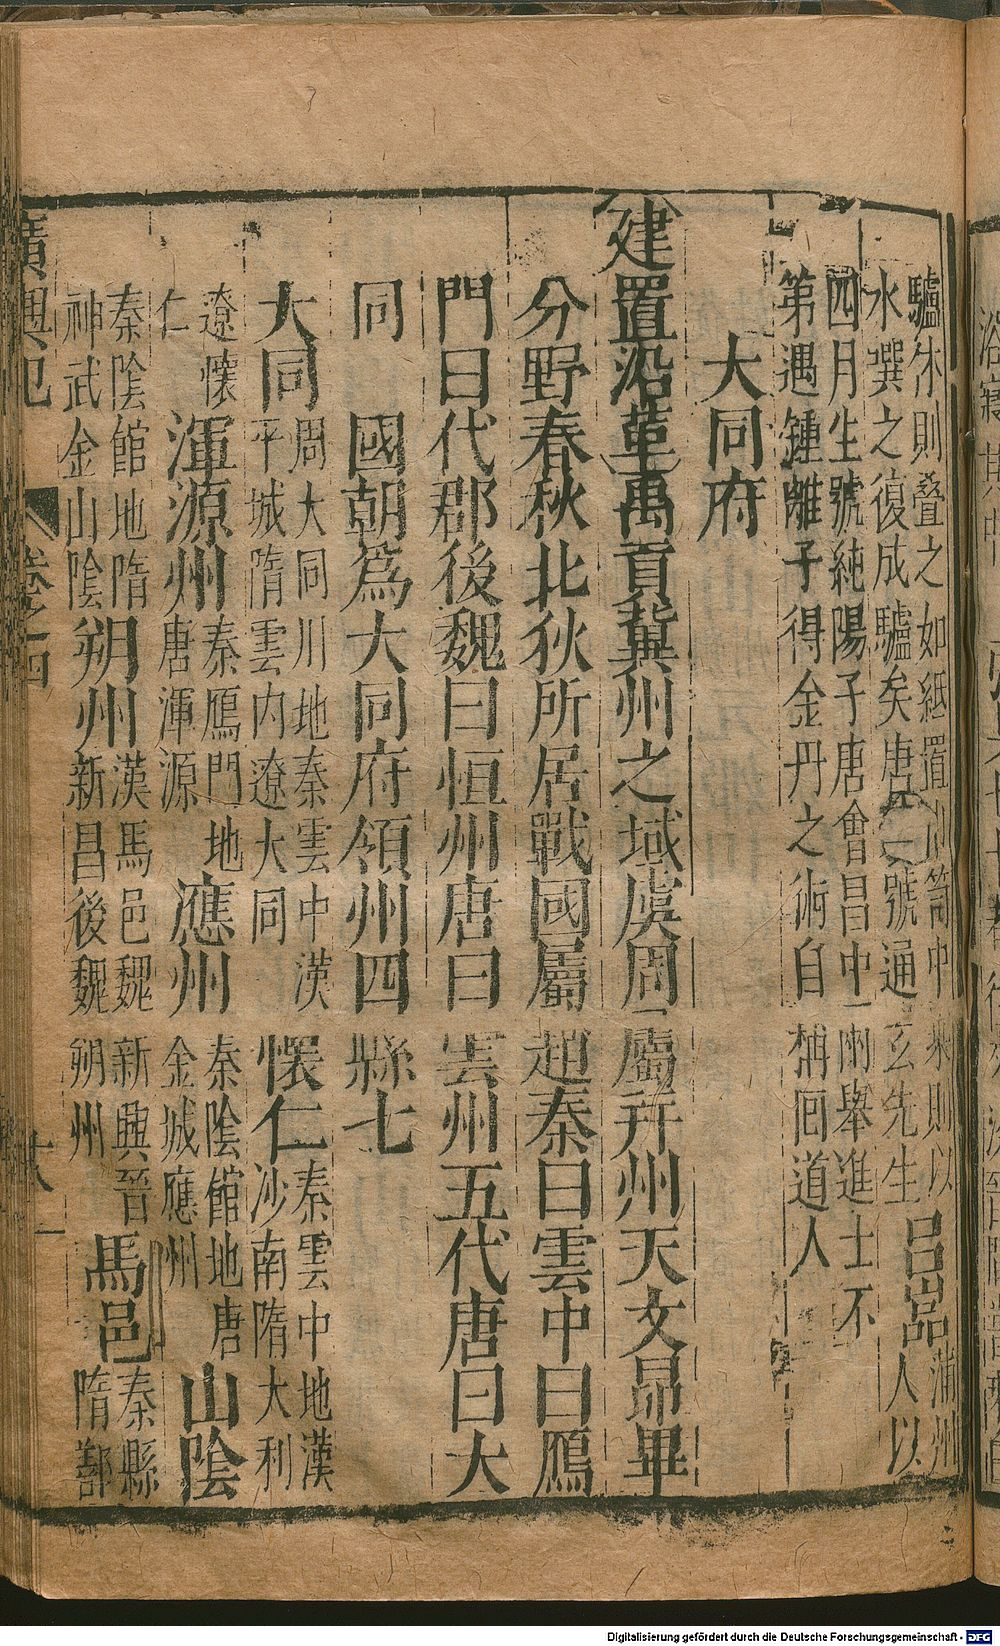 驢休則疊之如紙置巾笥中乘則以
水噀之復成驢矣唐 號通玄先生
呂嵒
蒲州
人以
四月生號純陽子唐會昌中兩舉進士不
第遇鍾離子得金丹之術自稱回道人
大同府
建置沿革禹貢冀州之域虞周屬幷州天文昴畢
分野春秋北狄所居戰國屬趙秦曰雲中曰鴈
門曰代郡後魏曰恒州唐曰雲州五代唐曰大
同 國朝爲大同府領州四縣七
大同
周大同川地秦雲中漢
平城隋雲内遼大同
懷仁
秦雲中地漢
沙南隋大利
遼懷
仁
渾源州
秦鴈門地
唐渾源
應州
秦陰館地唐
金城應州
山陰
秦陰館地隋
神武金山陰
朔州
漢馬邑魏新興晉
新昌後魏朔州
馬邑
秦縣
隋鄯
廣輿記 卷之四 十八
Digitalisierung gefördert durch die Deutsche Forschungsgemeinschaft - DFG